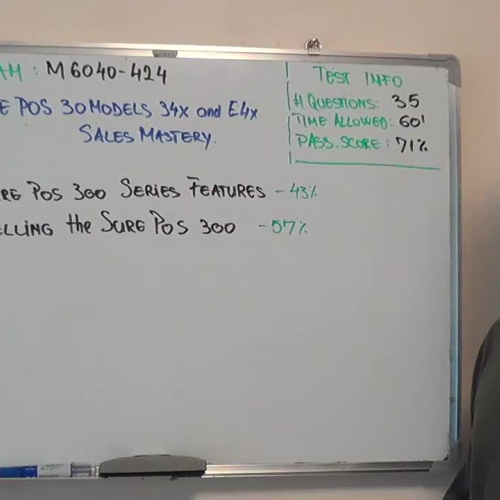 AM: M6040-424
E POS 30MODELS 34x and E4x
SALES MASTERY.
TEST INFO
# QUESTIONS: 35
TIME ALLOWED: 60'
PASS. SCORE: 71%
RE POS 300 SERIES FEATURES - 43%
ELLING the SURE POS 300 - 57%